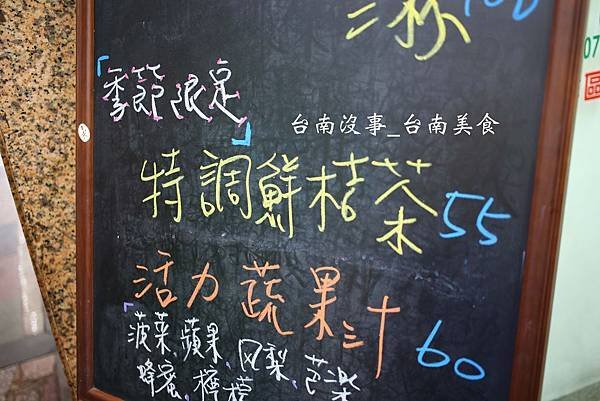 三杯 100
「季節限定」
台南沒事_台南美食
特調鮮桔茶 55
活力蔬果汁 60
「菠菜、蘋果、凤梨、芭樂
蜂蜜、檸檬
07
區